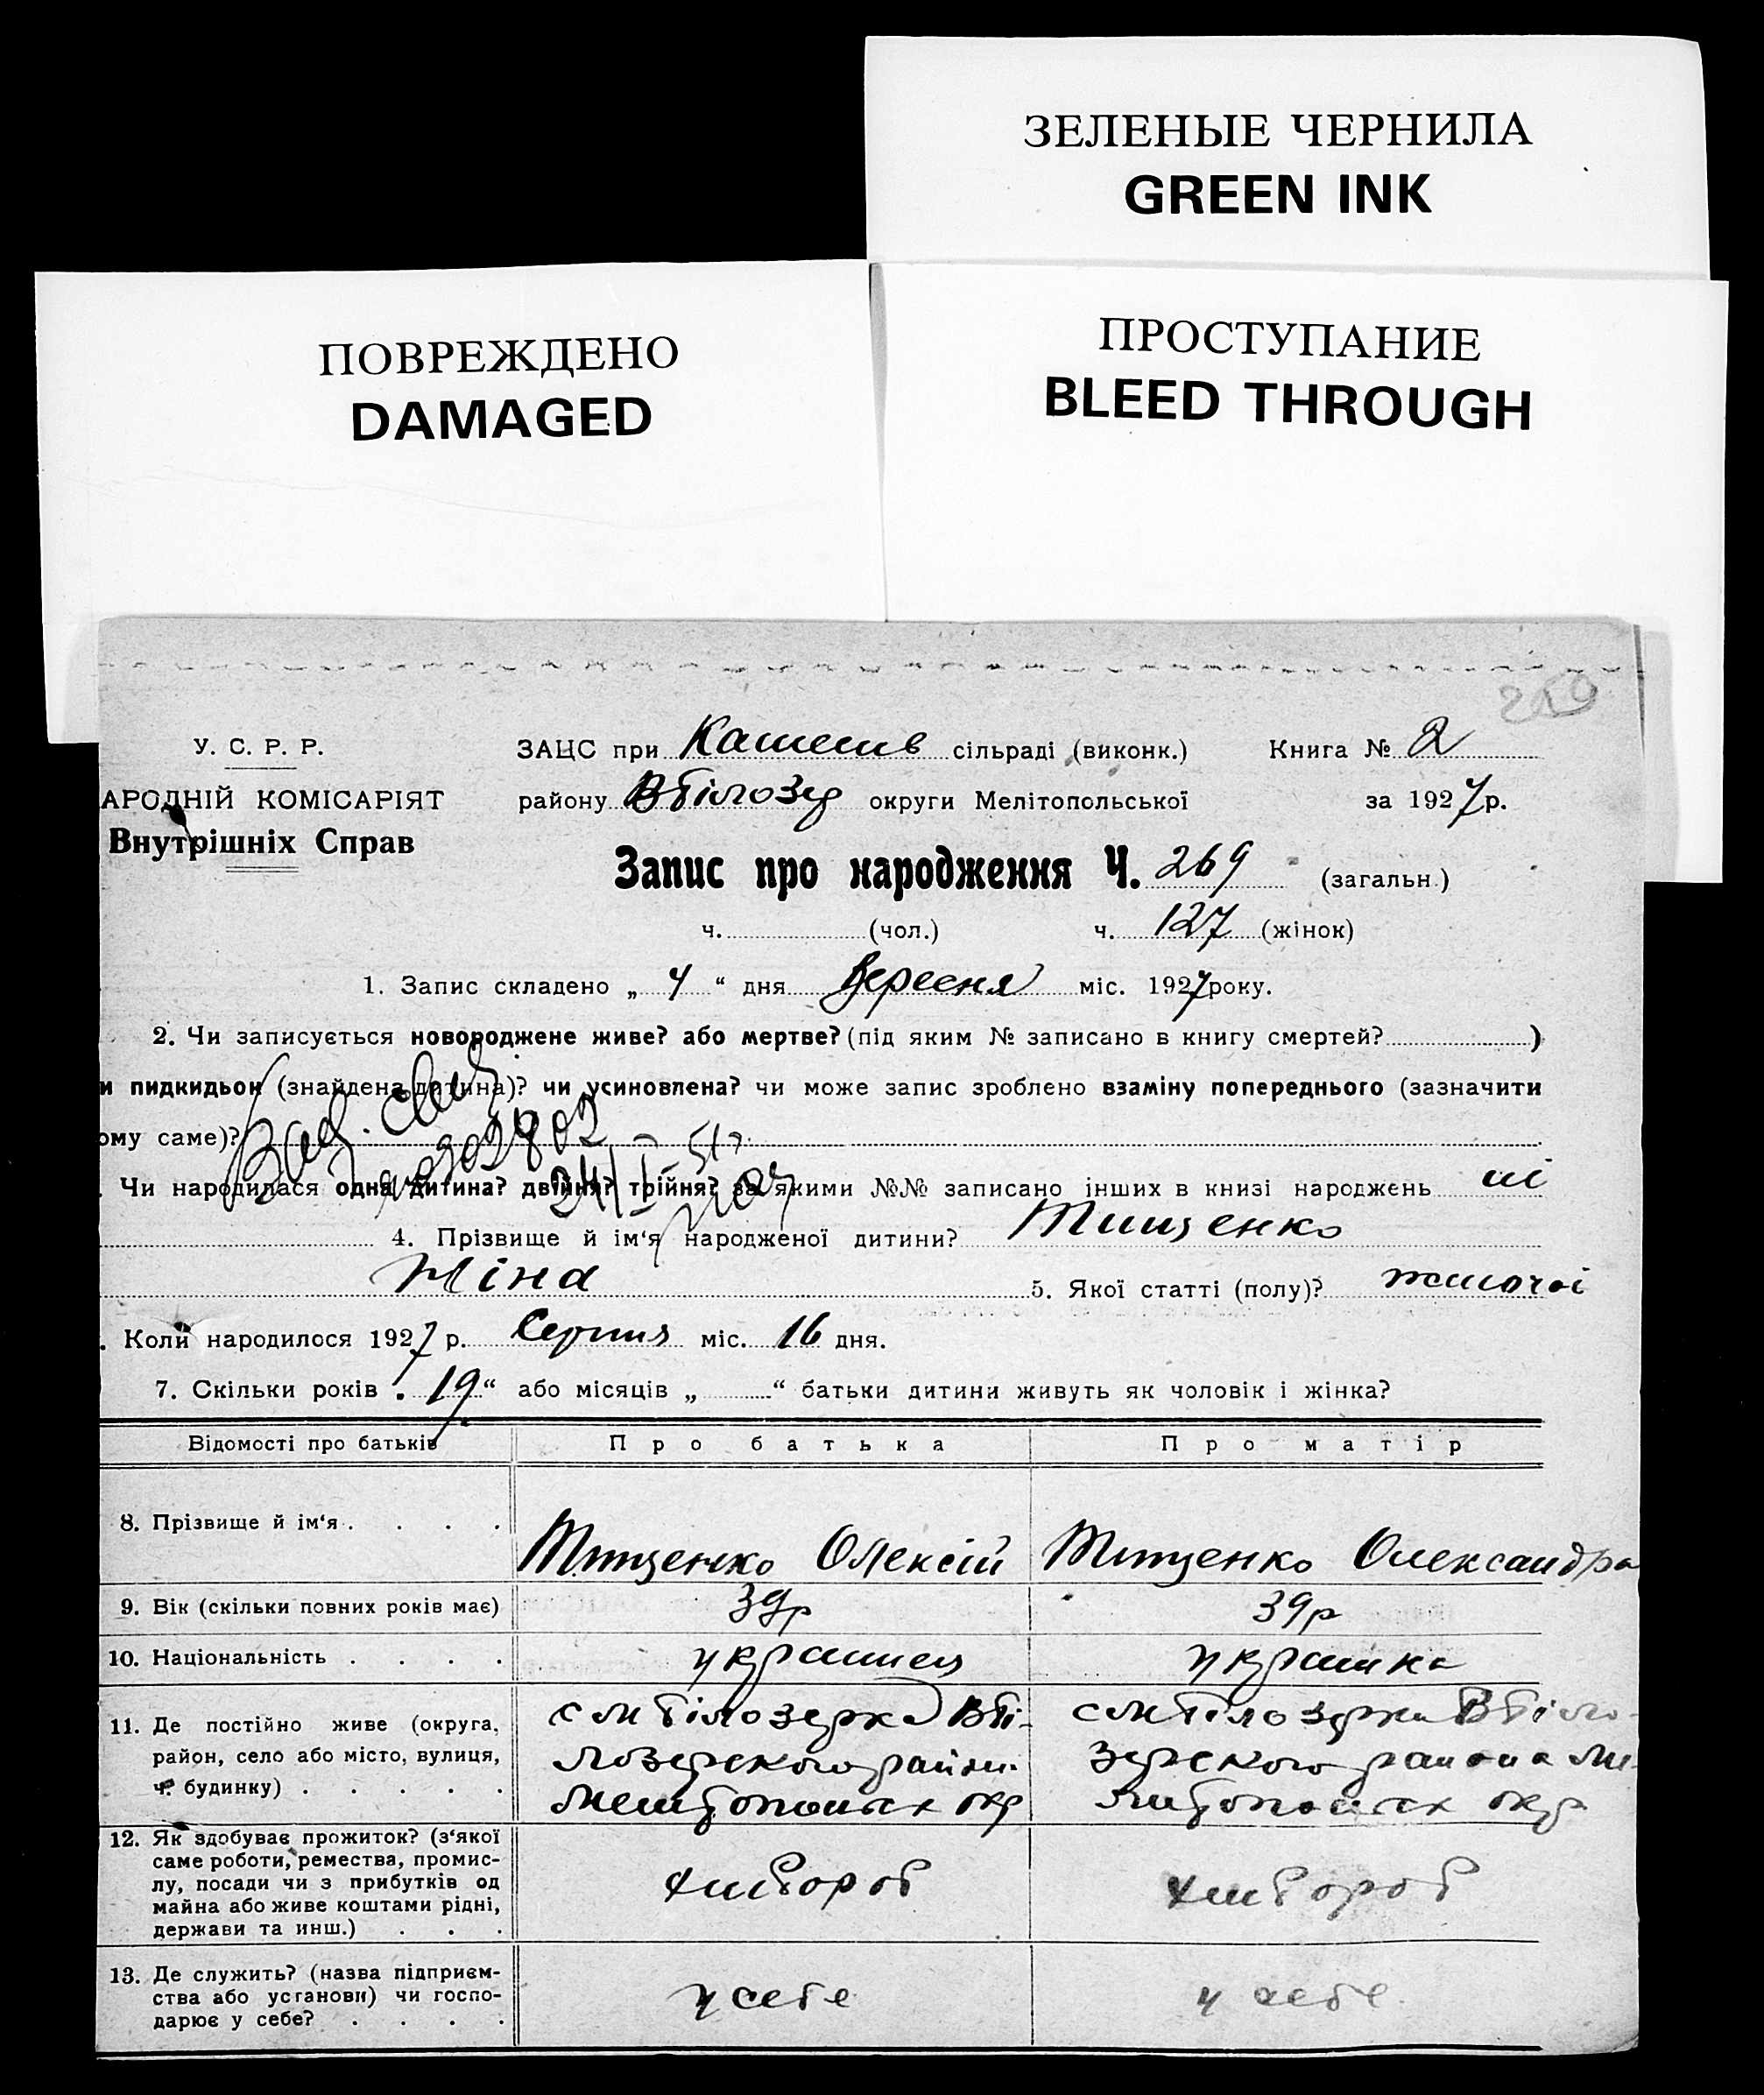 ЗЕЛЕНЫЕ ЧЕРНИЛА
GREEN INK
ПОВРЕЖДЕНО
DAMAGED
ПРОСТУПАНИЕ
BLEED THROUGH
У. С. Р. Р.
АРОДНІЙ КОМІСАРІЯТ
Внутрішніх Справ
ЗАЦС при сільраді (виконк.) Книга № 2
району ВБілозер округи Мелітопольської за 1927 р.
Запис про народження Ч. 269 (загальн.)
ч. (чол.) ч. 127 (жінок)
1. Запис складено „ 4 “ дня Вересня міс. 1927 року.
2. Чи записується новороджене живе? або мертве? (під яким № записано в книгу смертей? )
и пидкидьок (знайдена дитина)? чи усиновлена? чи може запис зроблено взаміну попереднього (зазначити
ому саме)?
. Чи народилася одна дитина? двійня? трійня? за якими №№ записано інших в книзі народжень ні
4. Прізвище й ім‘я народженої дитини? Тищенко
Ніна 5. Якої статті (полу)? жіночої
. Коли народилося 1927 р. Серпня міс. 16 дня.
7. Скільки років „ 19 “ або місяців „ “ батьки дитини живуть як чоловік і жінка?
Відомості про батьків Про батька Про матір
8. Прізвище й ім‘я . . . . Тищенко Олексій Тищенко Олександра
9. Вік (скільки повних років має) 39р 39р
10. Національність . . . . українец українка
11. Де постійно живе (округа, с МБілозерка ВБі- с МБілозерка ВБіло-
район, село або місто, вулиця, лозерского район. зерского района Ме-
ч. будинку) . . . . . Мелітопольск окр літопольск окр
12. Як здобуває прожиток? (з‘якої
саме роботи, ремества, промис-
лу, посади чи з прибутків од хлібороб хлібороб
майна або живе коштами рідні,
держави та инш.) . . .
13. Де служить? (назва підприєм-
ства або установи) чи госпо- у себе у себе
дарює у себе? . . . .